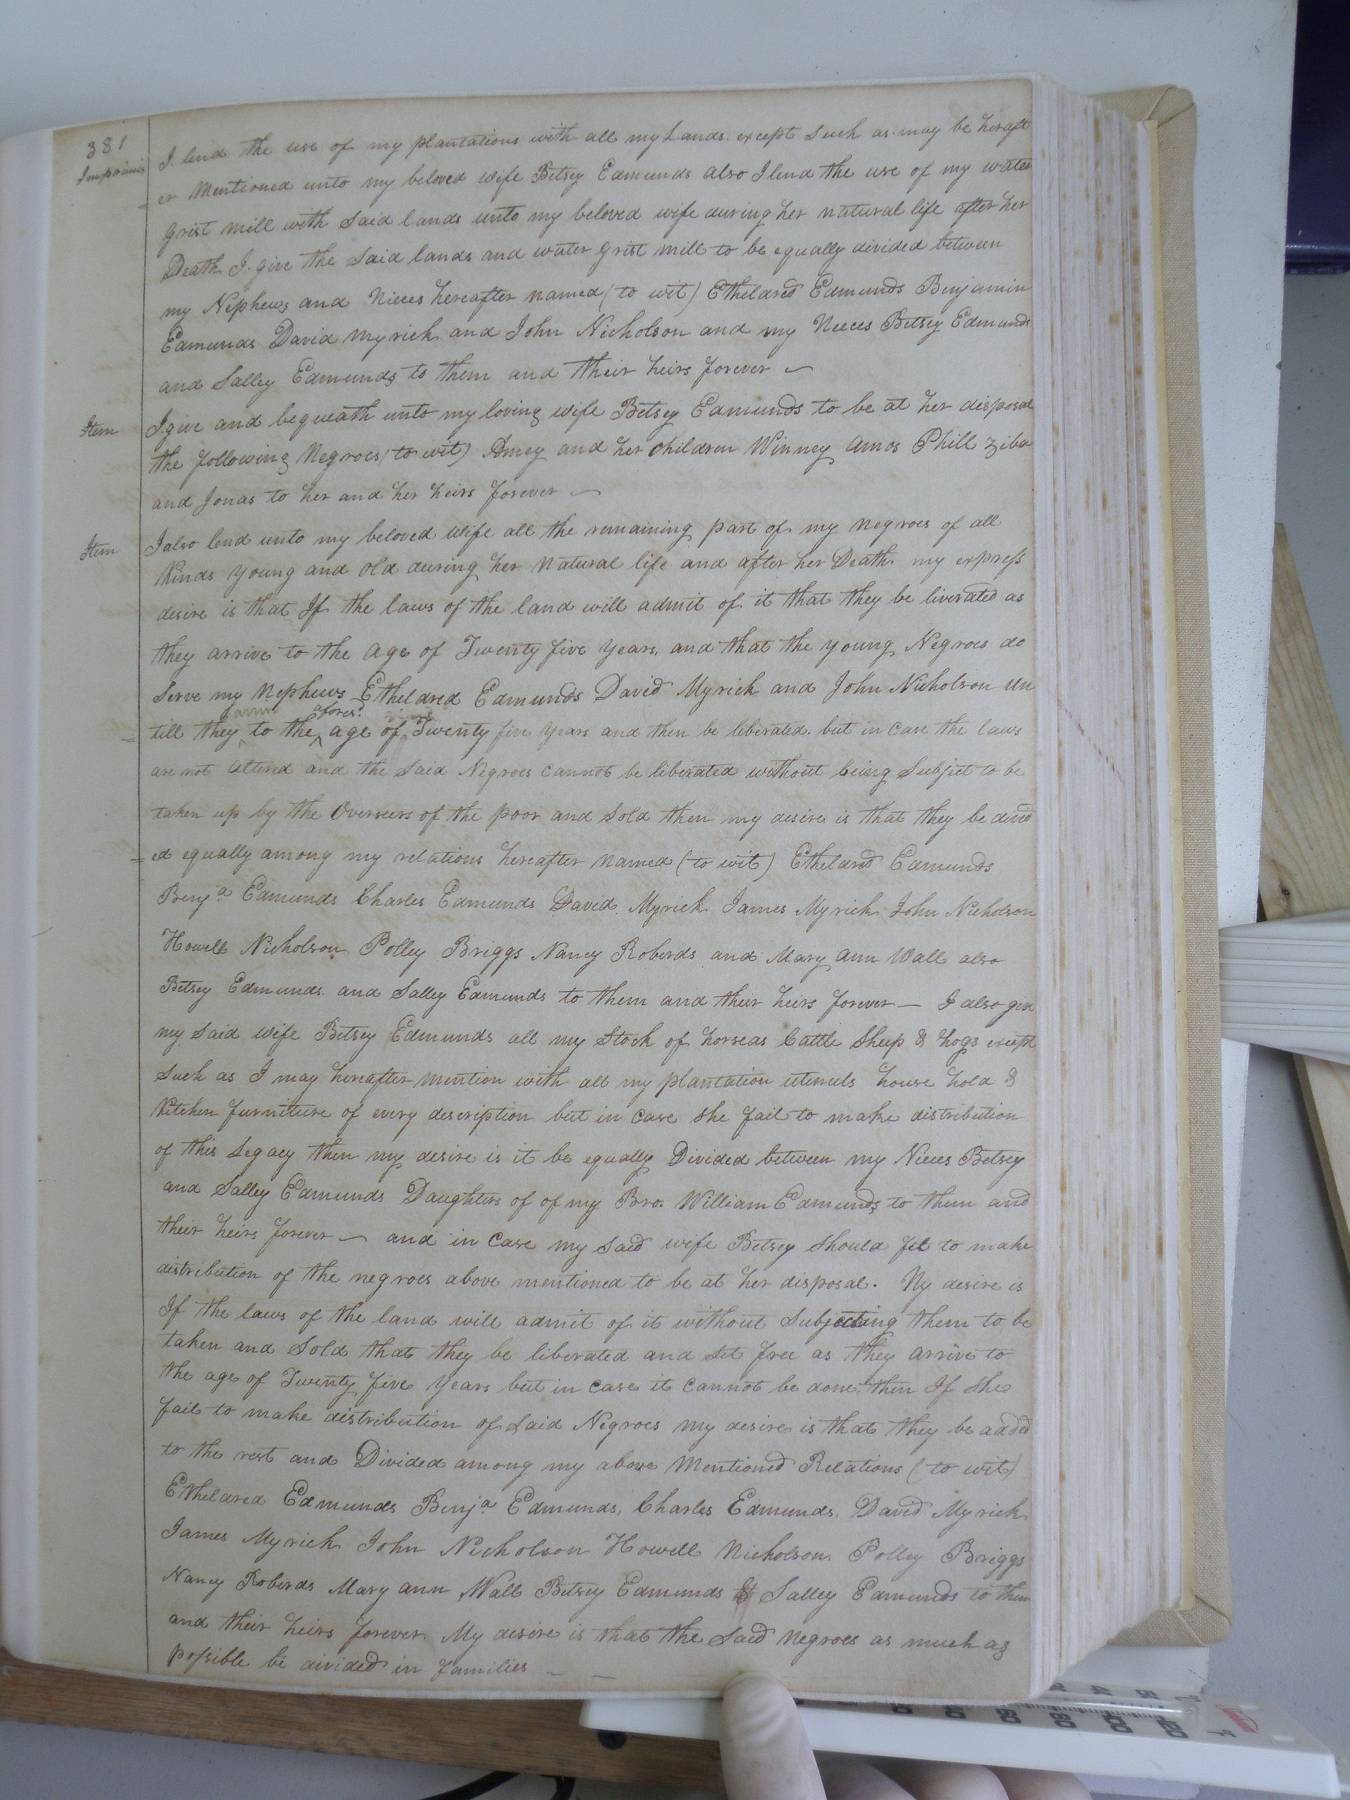 381
Imprimis I lend the use of my plantations with all my Lands except such as may be hereaft
er Mentioned unto my beloved wife Betsey Edmunds also I lend the use of my water
grist mill with said lands unto my beloved wife during her natural life after her
Death I give the said lands and water grist mill to be equally divided between
my Nephews and Nieces hereafter named (to wit) Etheldred Edmunds Benjamin
Edmunds David Myrick and John Nicholson and my Nieces Betsey Edmunds
and Salley Edmunds to them and their heirs forever
Item I give and bequeath unto my loving wife Betsey Edmunds to be at her disposal
the following Negroes (to wit) Amey and her children Winney Amos Phill Ziba
and Jonas to her and her heirs forever
Item I also lend unto my beloved wife all the remaining part of my negroes of all
Kinds young and old during her natural life and after her Death my express
desire is that If the laws of the land will admit of it that they be liverated as
they arrive to the age of Twenty five years, and that the young Negroes do
serve my Nephews Etheldred Edmunds David Myrick and John Nicholson un
till they arrive to the afores.d age of Twenty five years and then be liberated. but in case the laws
are not altend and the said Negroes cannot be liberated without being Subject to be
taken up by the Overseers of the poor and sold then my desire is that they be divid
ed equally among my relations hereafter named (to wit) Etheldred Edmunds
Benj.a Edmunds Charles Edmunds David Myrick James Myrick John Nicholson
Howell Nicholson Polley Briggs Nancy Roberds and Mary Ann Wall also
Betsey Edmunds and Salley Edmunds to them and their heirs forever — I also give
my said wife Betsey Edmunds all my Stock of horseas Cattle Sheep & hogs except
such as I may hereafter mention with all my plantation utensuls house hold &
Kitchen furniture of every description but in case she fail to make distribution
of this Legacy then my desire is it be equally Divided between my Nieces Betsey
and Salley Edmunds Daughters of of my Bro. William Edmunds to them and
their heirs forever — and in case my said wife Betsey should fel to make
distribution of the negroes above mentioned to be at her disposal. My desire is
If the laws of the land will admit of it without Subjecting them to be
taken and Sold that they be liberated and set free as they arrive to
the age of Twenty five years but in case it cannot be done then If she
fail to make distribution of said Negroes my desire is that they be added
to the rest and Divided among my above Mentioned Relations (to wit)
Etheldred Edmunds Benj.a Edmunds, Charles Edmunds, David Myrick
James Myrick John Nicholson Howell Nicholson Polley Briggs
Nancy Roberds Mary ann Wall Betsey Edmunds & Salley Edmunds to them
and their heirs forever. My desire is that the said negroes as much as
possible be divided in families — —